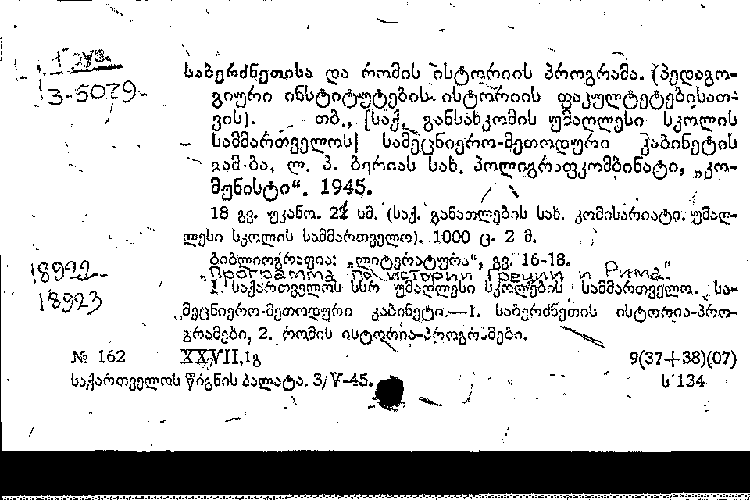 3-5079
საბერძნეთისა და რომის ისტორიის პროგრამა. (პედაგო-
გიური ინსტიტუტების ისტორიის ფაკულტეტებისათ-
ვის). თბ., [საქ. განსახკომის უმაღლესი სკოლის
სამმართველოს] სამეცნიერო-მეთოდური კაბინეტის
გამ-ბა, ლ. პ. ბერიას სახ. პოლიგრაფკომბინატი, „კო-
მუნისტი“. 1945.
18 გვ. უკანო. 22 სმ. (საქ. განათლების სახ. კომისარიატი. უმაღ-
ლესი სკოლის სამმართველო). 1000 ც. 2 მ.
ბიბლიოგრაფია: „ლიტერატურა“, გვ. 16-18.
18922 „Программа по истории Греции и Рима“.
18923 1. საქართველოს სსრ უმაღლესი სკოლების სამმართველო. სა-
მეცნიერო-მეთოდური კაბინეტი.—1. საბერძნეთის ისტორია-პრო-
გრამები, 2. რომის ისტორია-პროგრამები.
№ 162 XXVII,1გ 9(37+38)(07)
საქართველოს წიგნის პალატა. 3/V-45. ს 134